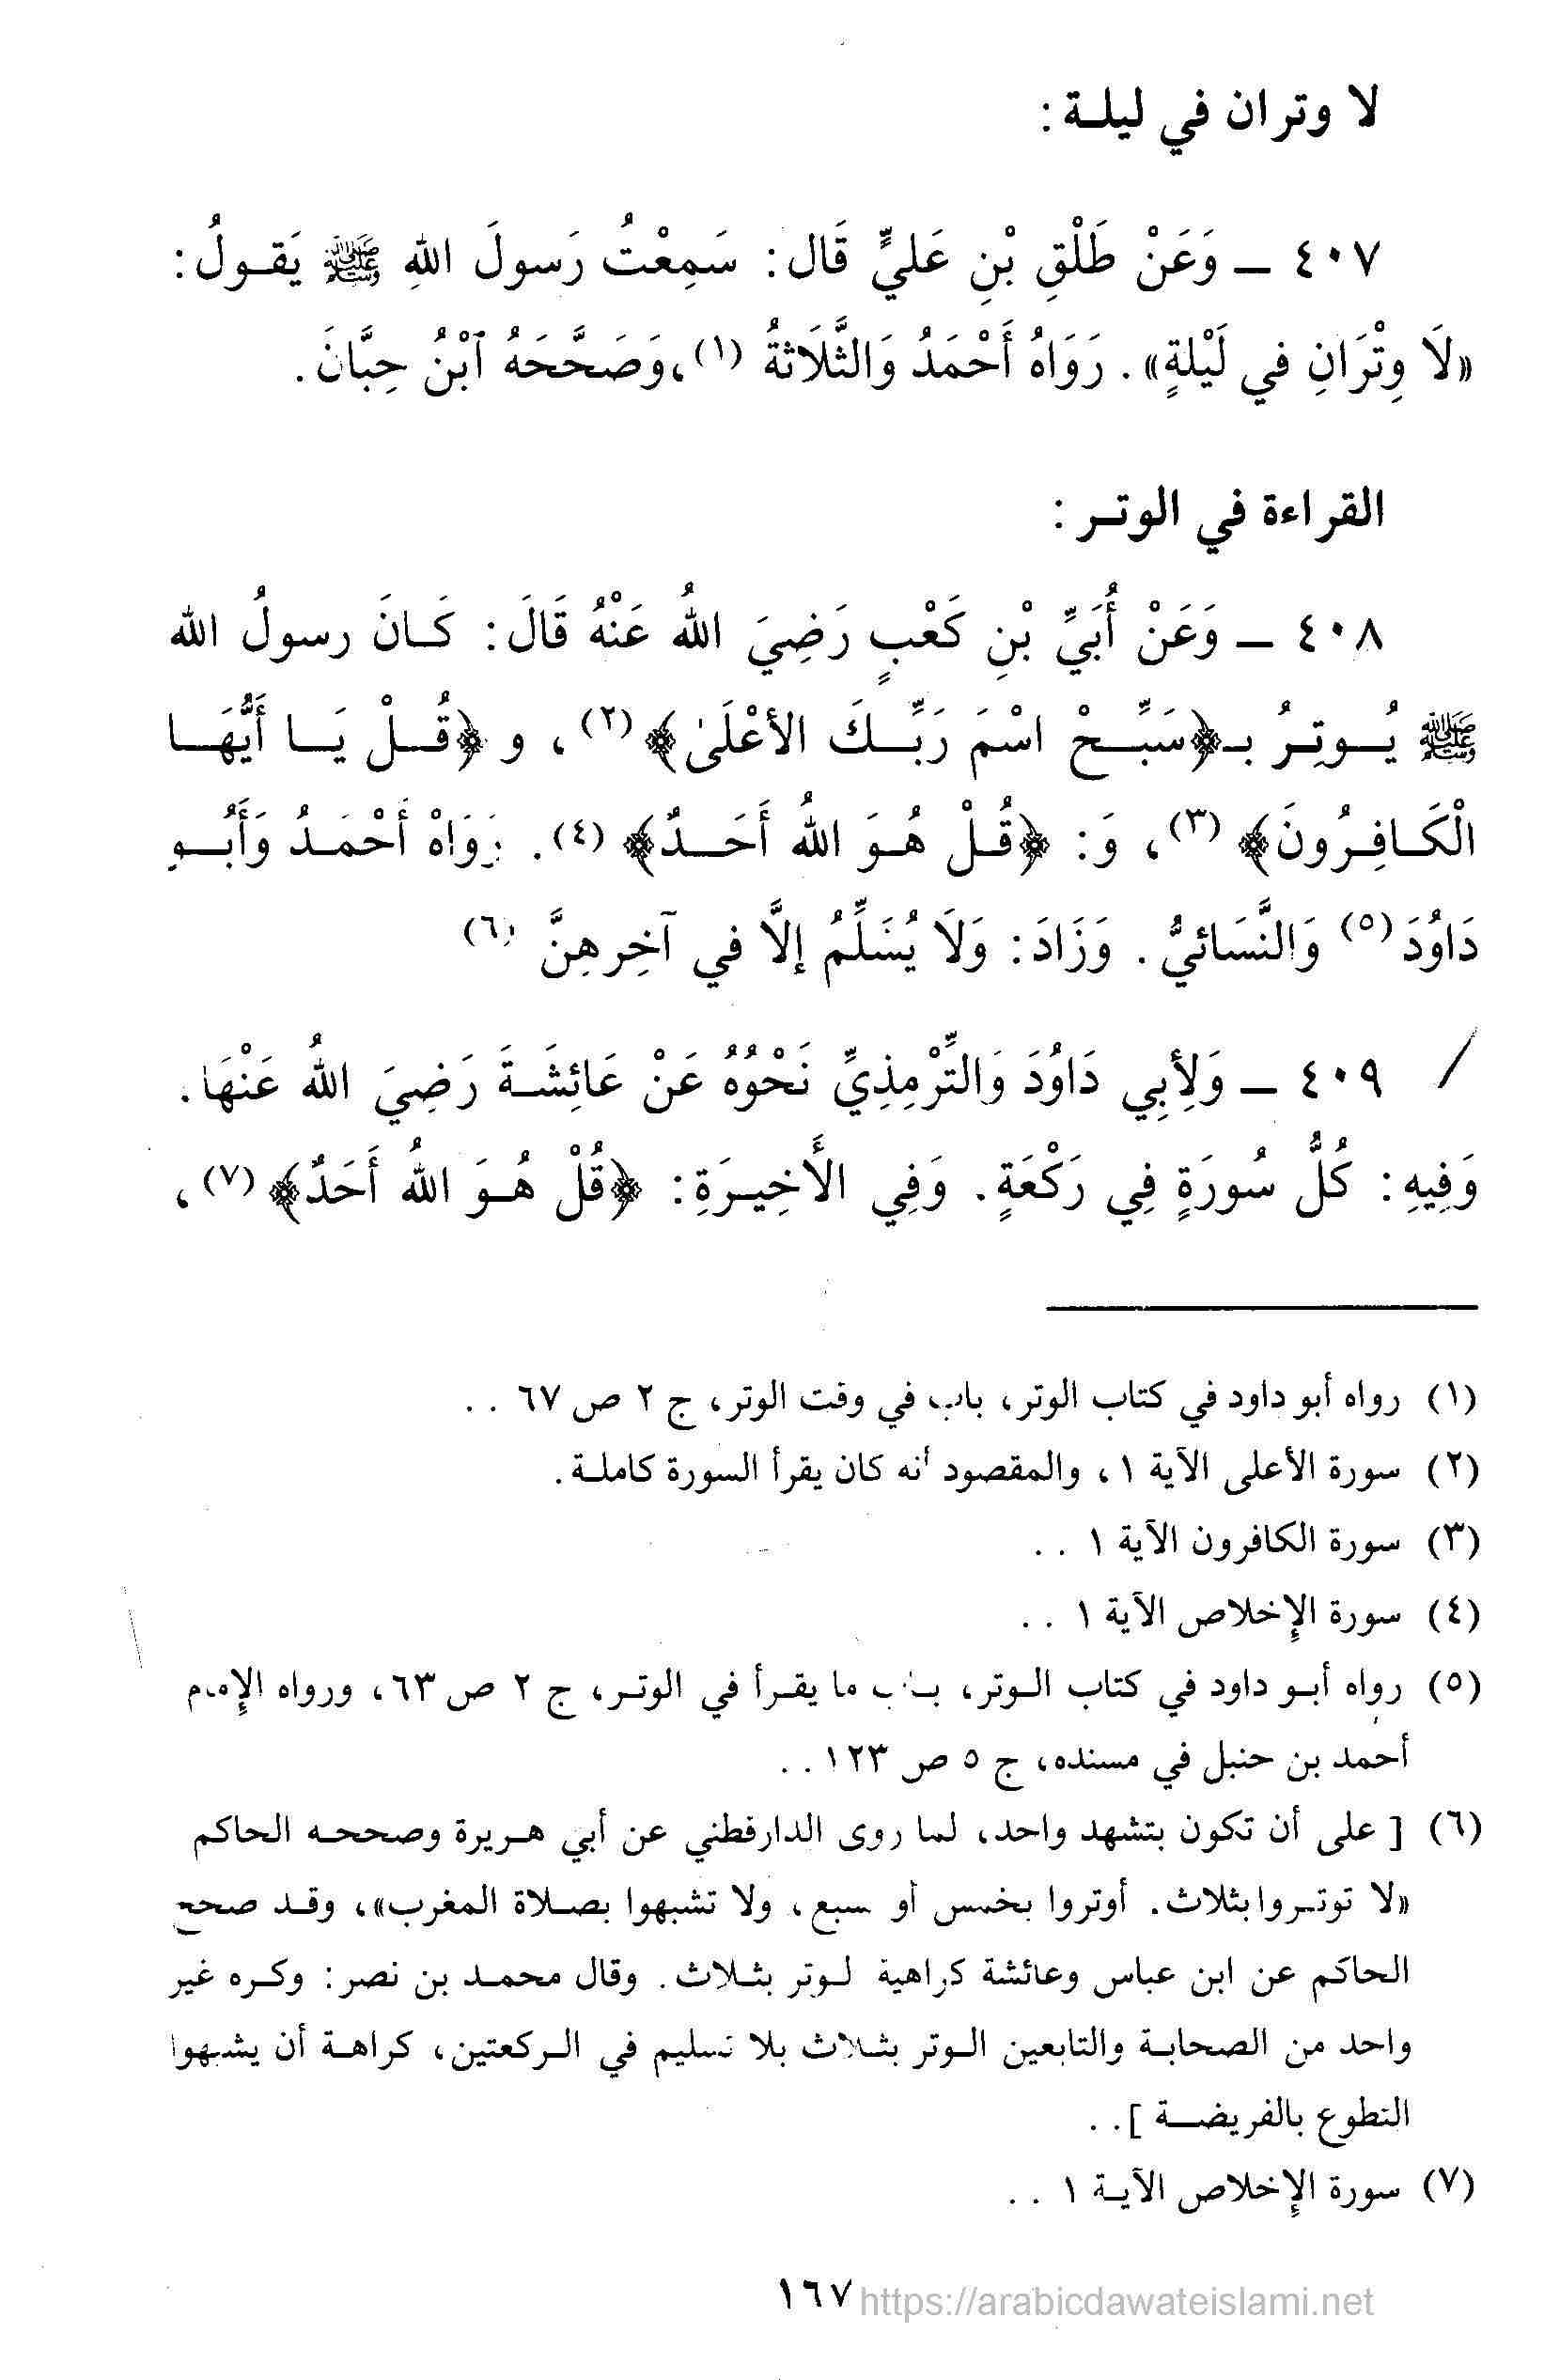 لا وتران في ليلـة :
٤٠٧ ـ وَعَنْ طَلْقِ بْنِ عَليٍّ قَال: سَمِعْتُ رَسولَ اللهِ ﷺ يَقـولُ:
«لَا وِتْرَانِ في لَيْلةٍ». رَوَاهُ أَحْمَدُ وَالثَّلَاثةُ (١)،وَصَحَّحَهُ ٱبْنُ حِبَّانَ.
القراءة في الوتـر :
٤٠٨ ـ وَعَنْ أُبَيِّ بْنِ كَعْبٍ رَضِيَ اللهُ عَنْهُ قَالَ: كَـانَ رسولُ الله
ﷺ يُـوتِـرُ بـ﴿سَبِّـحْ اسْمَ رَبِّـكَ الأعْلَىٰ﴾(٢)، و ﴿قُـلْ يَـا أَيُّهَـا
الْكَـافِـرُونَ﴾ (٣)، وَ: ﴿قُـلْ هُـوَ اللهُ أَحَـدٌ﴾ (٤). رَوَاهْ أَحْمَـدُ وَأَبُـو
دَاوُدَ(٥) وَالنَّسَائيُّ. وَزَادَ: وَلَا يُسَلِّمُ إلَّا في آخِرهِنَّ (٦)
/ ٤٠٩ ـ وَلِأبِي دَاوُدَ وَالتِّرْمِذِيِّ نَحْوُهُ عَنْ عَائِشَـةَ رَضِيَ اللهُ عَنْهَا.
وَفِيهِ: كُلُّ سُورَةٍ فِي رَكْعَةٍ. وَفِي الأَخِيـرَةِ: ﴿قُلْ هُـوَ اللهُ أَحَدٌ﴾(٧)،
(١) رواه أبو داود في كتاب الوتر، باب في وقت الوتر، ج ٢ ص ٦٧ . .
(٢) سورة الأعلى الآية ١، والمقصود أنه كان يقرأ السورة كاملـة.
(٣) سورة الكافرون الآية ١ . .
(٤) سورة الإخلاص الآية ١ . .
(٥) رواه أبـو داود في كتاب الـوتر، بـاب ما يقـرأ في الوتـر، ج ٢ ص ٦٣، ورواه الإمام
أحمد بن حنبل في مسنده، ج ٥ ص ١٢٣ . .
(٦) [ على أن تكون بتشهد واحد، لما روى الدارقطني عن أبي هـريرة وصححـه الحاكم
«لا توتـروا بثلاث. أوتروا بخمس أو سبع، ولا تشبهوا بصـلاة المغرب»، وقـد صحح
الحاكم عن ابن عباس وعائشة كراهية لـوتر بثـلاث. وقال محمـد بن نصر: وكـره غير
واحد من الصحابـة والتابعين الـوتر بثـلاث بلا تسليم في الـركعتين، كراهـة أن يشبهوا
التطوع بالفريضـة ]. .
(٧) سورة الإخلاص الآيـة ١ . .
١٦٧ https://arabicdawateislami.net